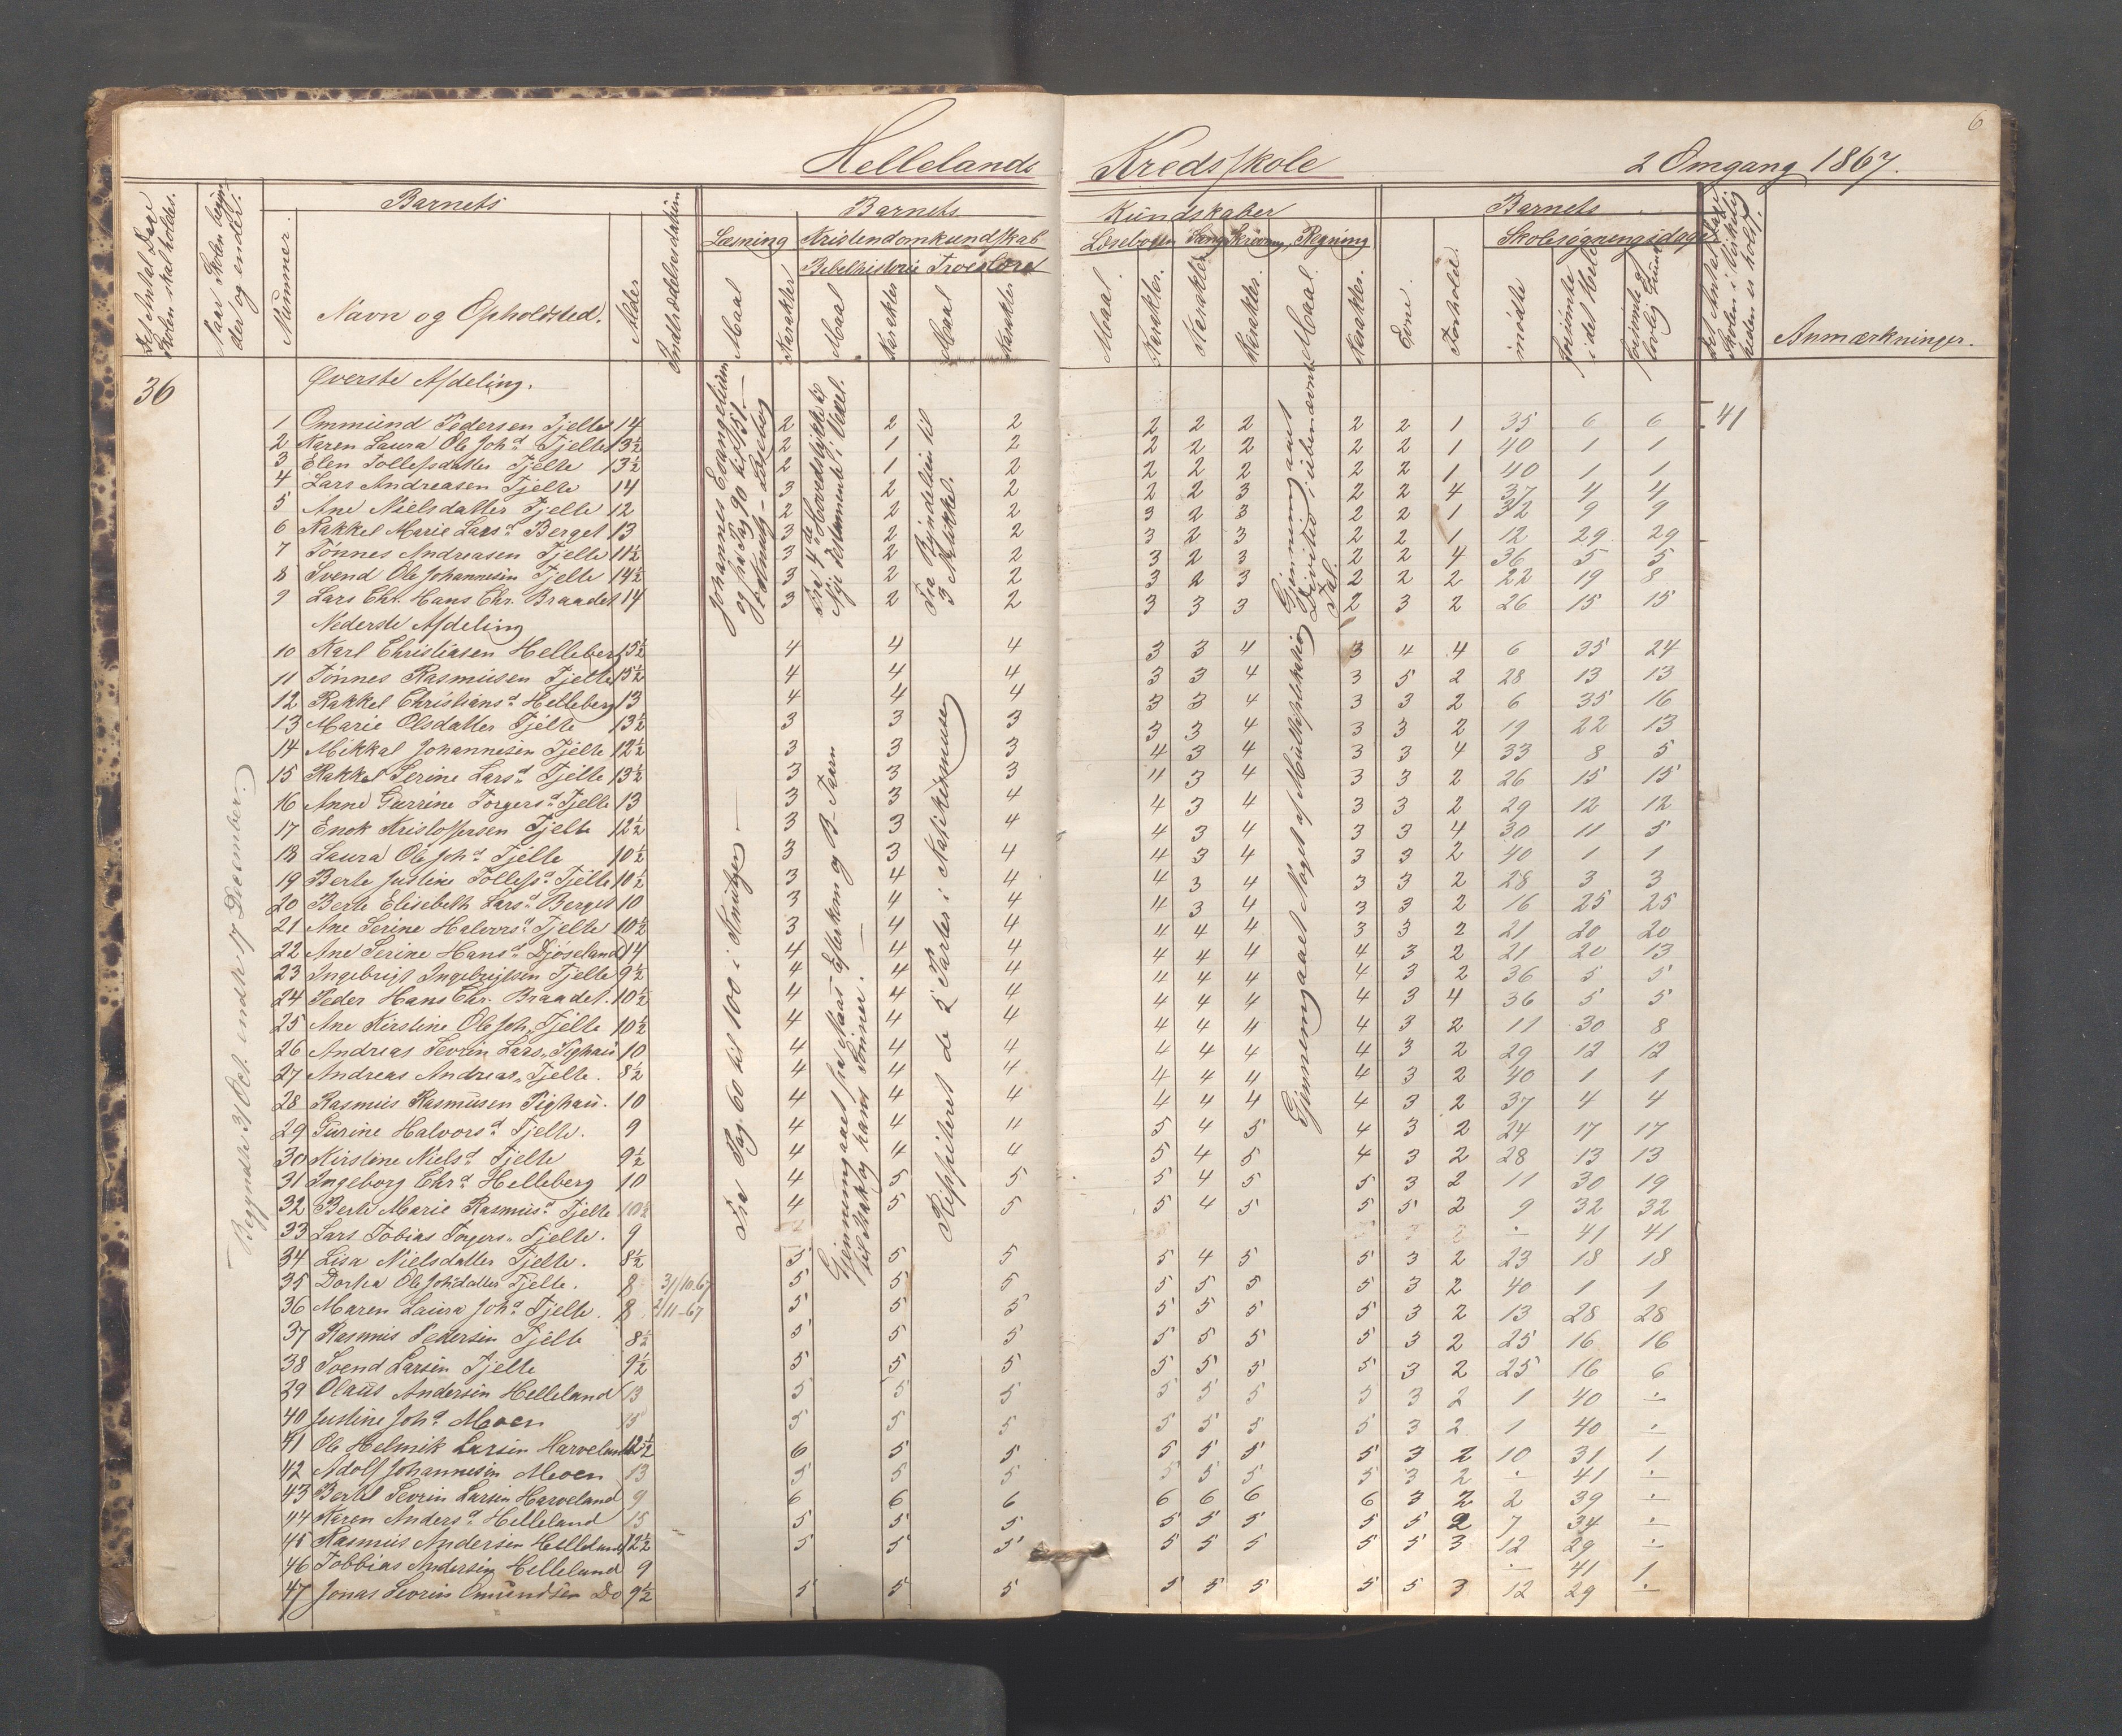 6
Hellelands Kredsskole 2 Omgang 1867.
Det Antal Dage Skolen skal holdes.
Naar Skolen begynder og ender.
Nummer.
Barnets
Navn og Opholdsted.
Alder
Indtrædelsesdatum
Barnets Kundskaber
Læsning Kristendomkundskab Læsebogen Sang Skrivning, Regning
Bibelhistorie Troeslære
Maal Karakter Maal Karakter Maal Karakter Maal. Karakter. Karakter Karakter. Maal. Karakter.
Barnets
Evne. Forhold.
Skolesøgningsdage
mødte forsømte i det Hele forsømte af lovlig Grund
Det Antal Dage Skolen i Virkeligheden er holdt.
Anmærkninger.
36
Begyndte 31 Oct. endte 17 December.
Øverste Afdeling.
Johannes Evangelium og fra Pag 90 til 151. i Knutz Læsebog
Fra 4de Hovedstykke til Nye Testamente i Vexel.
Fra Byndelsen til 3 Artikkel.
Gjennemgaaet Division i ubenævnte Tal.
1 Ommund Pedersen Tjelte 14 2 2 2 2 2 2 2 2 1 35 6 6 41
2 Karen Laura Ole Johd Tjelte 13½ 2 1 2 2 2 2 2 2 1 40 1 1
3 Elen Tollefsdatter Tjelte 13½ 2 1 2 2 2 2 2 2 1 40 1 1
4 Lars Andreasen Tjelte 14 3 2 2 2 2 3 2 2 4 37 4 4
5 Ane Nielsdatter Tjelte 12 2 2 2 3 2 3 2 2 1 32 9 9
6 Rakkel Marie Larsd Berget 13 3 2 2 3 2 3 2 2 1 12 29 29
7 Tønnes Andreasen Tjelte 11½ 3 2 2 3 2 3 2 2 4 36 5 5
8 Svend Ole Johannesen Tjelte 14½ 3 2 2 3 2 3 2 2 2 22 19 8
9 Lars Chr. Hans Chr. Braadet 14 3 2 2 3 3 3 2 3 2 26 15 15
Nederste Afdeling
Fra Pag. 60 til 100 i Knutzen
Gjennemgaaet fra Noas Efterkom og B- Taarn til Isak og hans Sønner.
Reppeteret de 2 Parter i Katekismusen
Gjennemgaaet Noget af Multiplikation
10 Karl Christiasen Helleberg 15½ 4 4 4 3 3 4 3 4 4 6 35 24
11 Tønnes Rasmusen Tjelte 15½ 4 4 4 3 3 4 3 5 2 28 13 13
12 Rakkel Christiansd Helleberg 13 4 4 4 3 3 4 3 3 2 6 35 16
13 Marie Olsdatter Tjelte 13½ 3 3 3 3 3 4 3 3 2 19 22 13
14 Mikkal Johannesen Tjelte 12½ 3 3 3 4 3 4 3 3 4 33 8 5
15 Rakkel Serine Larsd Tjelte 13½ 3 3 3 4 3 4 3 3 2 26 15 15
16 Anne Gurrine Torgersd Tjelte 13 3 3 4 4 3 4 3 3 2 29 12 12
17 Enok Kristoffersen Tjelte 12½ 3 3 4 4 3 4 3 3 4 30 11 5
18 Laura Ole Johd Tjelte 10½ 3 3 4 4 3 4 3 3 2 40 1 1
19 Berte Justine Tollefsd Tjelte 10½ 3 4 4 4 3 4 3 3 2 28 3 3
20 Berte Elisebeth Larsd Berget 10 3 4 4 4 3 4 3 3 2 16 25 25
21 Ane Serine Halvorsd Tjelte 10½ 3 4 4 4 4 4 3 3 2 21 20 20
22 Ane Serine Hansd Djøseland 14 4 4 4 4 4 4 4 3 2 21 20 13
23 Ingebrigt Ingebrigtsen Tjelte 9½ 4 4 4 4 4 4 4 3 2 36 5 5
24 Peder Hans Chr. Braadet. 10½ 4 4 4 4 4 4 4 3 4 36 5 5
25 Ane Kirstine Ole Joh. Tjelte 10½ 4 4 4 4 4 4 4 3 2 11 30 8
26 Andreas Sevrin Lars. Pighaui 10 4 4 4 4 4 4 4 3 2 29 12 12
27 Andreas Andreas. Tjelte. 8½ 4 4 4 4 4 4 4 3 2 40 1 1
28 Rasmus Rasmusen Pighaui. 10 4 4 4 4 4 4 4 3 2 37 4 4
29 Gurine Halvorsd Tjelte. 9 4 4 4 5 4 5 4 3 2 24 17 17
30 Kirstine Nielsd Tjelte 9½ 4 4 4 5 4 5 4 3 2 28 13 13
31 Ingeborg Chrd Helleberg 10 4 5 5 5 4 5 5 3 2 11 30 19
32 Berte Marie Rasmusd Tjelte 10½ 4 5 5 5 4 5 5 5 2 9 32 32
33 Lars Tobias Torgers. Tjelte. 9 ÷ 41 41
34 Lisa Nielsdatter Tjelte. 8½ 5 5 5 5 4 5 5 3 2 23 18 18
35 Dortea Ole Johsdatter Tjelte. 8 31/10.67 5 5 5 5 5 5 5 3 2 40 1 1
36 Maren Laura Johd Tjelte. 8 2/11-67 5 5 5 5 5 5 5 3 2 13 28 28
37 Rasmus Pedersen Tjelte 8½ 5 5 5 5 5 5 5 3 2 25 16 16
38 Svend Larsen Tjelte 9½ 5 5 5 5 5 5 5 3 2 25 16 6
39 Olaus Andersen Helleland 13 5 5 5 5 5 5 5 3 2 1 40 ÷
40 Justine Johd Moen 15 5 5 5 5 5 5 5 3 2 1 40 ÷
41 Ole Helmik Larsen Harveland 12½ 6 5 5 5 5 5 5 3 2 10 31 1
42 Adolf Johannesen Moen 13 5 5 5 5 5 5 5 3 2 ÷ 41 ÷
43 Bertel Sevrin Larsen Harveland 9 6 6 6 6 6 6 6 3 2 2 39 ÷
44 Karen Andersd Helleland 15 5 5 5 5 5 5 5 5 2 7 34 ÷
45 Rasmus Andersen Helleland 12½ 5 5 5 5 5 5 5 5 3 12 29 ÷
46 Tobbias Andersen Helleland 9 ÷ 41 1
47 Jonas Sevrin Omundsen Do 9½ 5 5 5 5 5 5 5 5 3 12 29 ÷